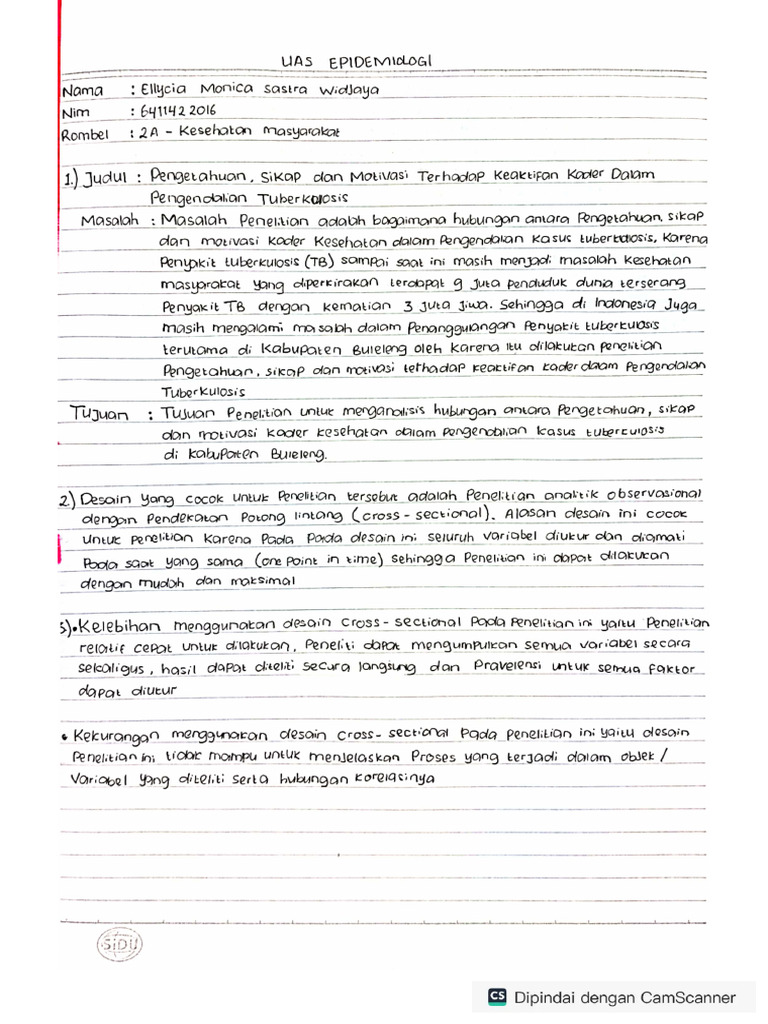 UAS EPIDEMIOLOGI
Nama : Ellycia Monica Sastra Widjaya
Nim : 6411422016
Rombel : 2A - Kesehatan masyarakat
1.) Judul : Pengetahuan, Sikap dan Motivasi Terhadap Keaktifan Kader Dalam
Pengendalian Tuberkulosis
Masalah : Masalah Penelitian adalah bagaimana hubungan antara Pengetahuan, sikap
dan motivasi kader Kesehatan dalam Pengendalian Kasus tuberkulosis, Karena
Penyakit tuberkulosis (TB) sampai saat ini masih menjadi masalah kesehatan
masyarakat yang diperkirakan terdapat 9 Juta Penduduk dunia terserang
Penyakit TB dengan kematian 3 Juta Jiwa. Sehingga di Indonesia Juga
masih mengalami masalah dalam Penanggulangan Penyakit tuberkulosis
terutama di Kabupaten Buleleng oleh karena itu dilakukan penelitian
Pengetahuan, sikap dan motivasi tethadap keaktifan kader dalam Pengendalian
Tuberkulosis
Tujuan : Tujuan Penelitian untuk menganalisis hubungan antara Pengetahuan, sikap
dan motivasi kader kesehatan dalam pengendalian kasus tuberculosis
di Kabupaten Buleleng.
2.) Desain yang cocok untuk Penelitian tersebut adalah Penelitian analitik observasional
dengan Pendekatan Potong lintang (cross-sectional). Alasan desain ini cocok
untuk Penelitian Karena Pada Pada desain ini seluruh variabel diukur dan diamati
Pada saat yang sama (one Point in time) sehingga Penelitian ini dapat dilakukan
dengan mudah dan maksimal
3). • Kelebihan menggunakan desain Cross-sectional Pada Penelitian ini yaitu Penelitian
relatif cepat untuk dilakukan, Peneliti dapat mengumpulkan semua variabel secara
sekaligus, hasil dapat diteliti secura langsung dan Pravelensi untuk semua faktor
dapat diukur
• Kekurangan menggunakan desain cross-sectional Pada Penelitian ini yaitu desain
Penelitian ini tidak mampu untuk menjelaskan Proses yang terjadi dalam objek /
Variabel yang diteliti serta hubungan korelasinya
SiDU
CS Dipindai dengan CamScanner